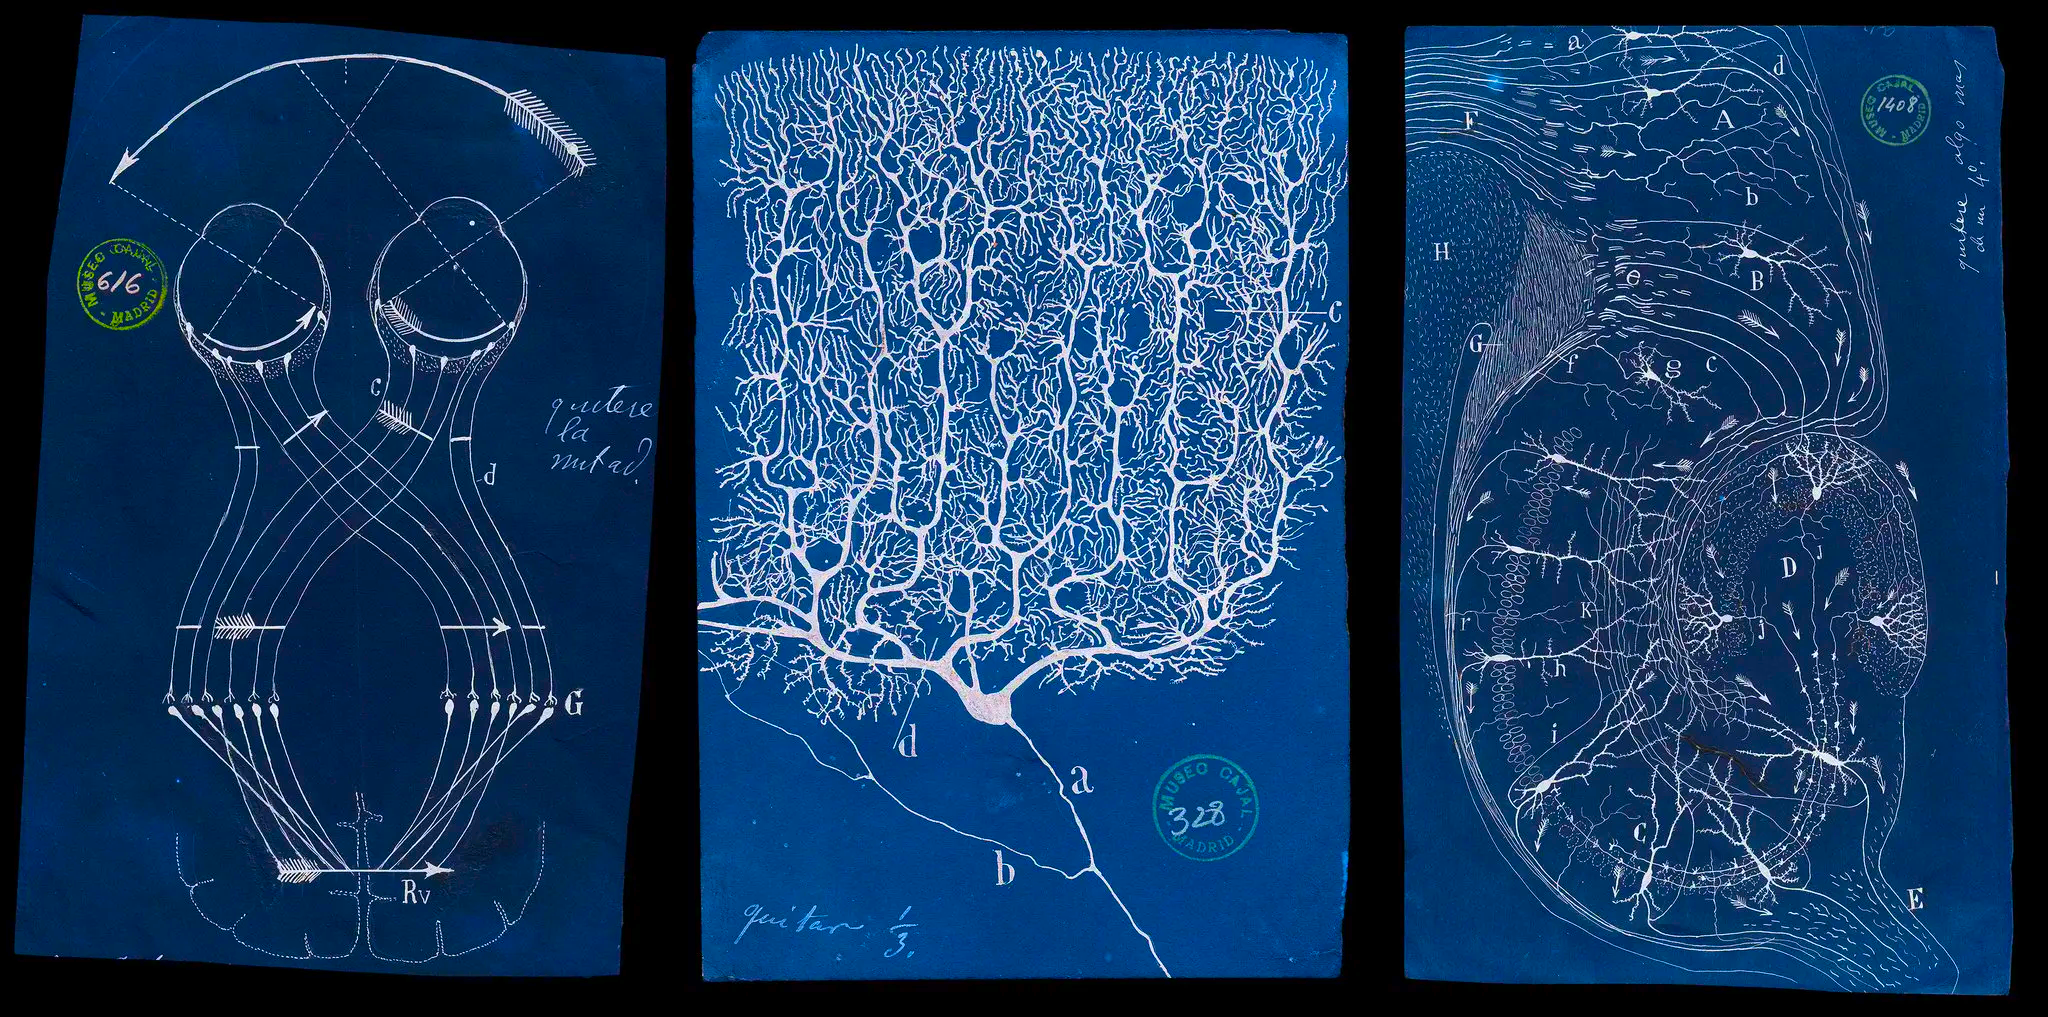 MUSEO CAJAL
616
- MADRID -
c
quitese
la
mitad.
d
G
Rv
c
d
a
b
MUSEO CAJAL
328
- MADRID -
quitar 1/3.
a
d
MUSEO CAJAL
1408
- MADRID -
quitese algo mas
de un 40.
F
A
b
H
e
B
G
f
g
c
J
D
r
K
j
h
i
C
E